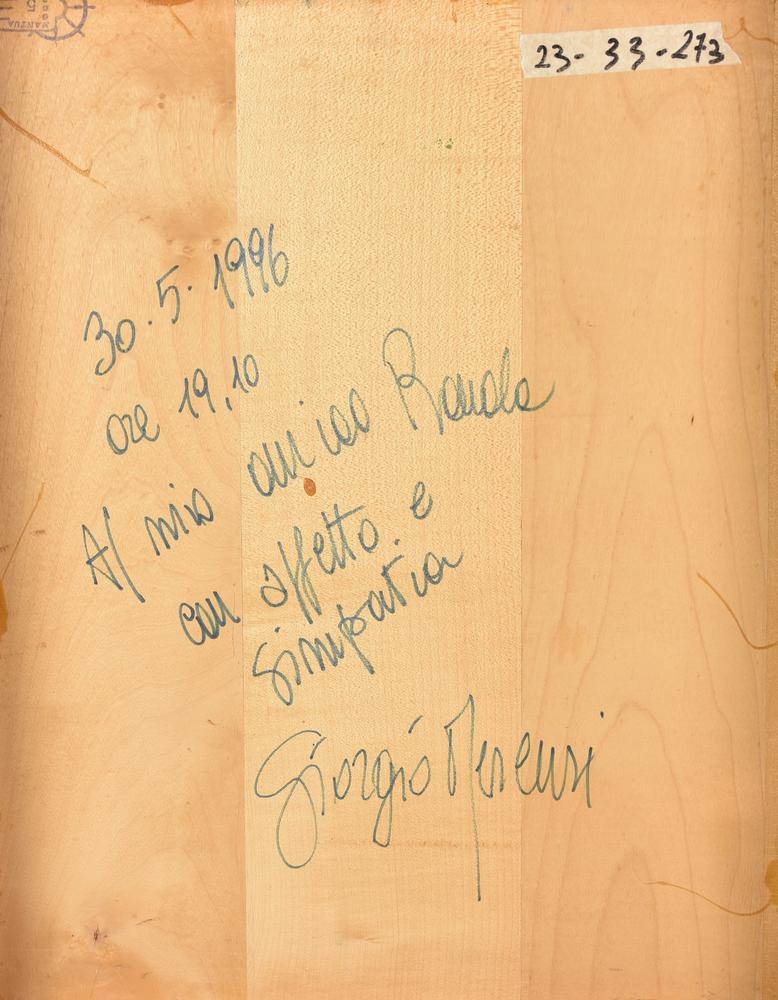 23-33-273
30.5.1996
ore 19,10
Al mio amico
con affetto. e
simpatia
Giorgio Merenzi
MANTUA